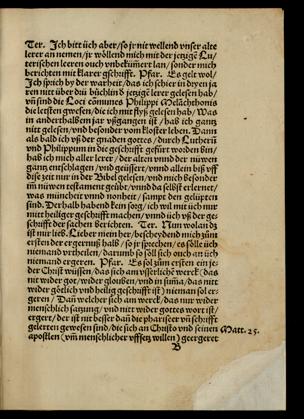 Ter. Ich bitt üch aber / so jr nit wellend vnser alte
lerer an nemen / jr wöllend mich mit der jetzigẽ Lu-
terischen leeren ouch vnbekümert lan / sonder mich
berichten mit klarer gschrifft. Pfar. Es gelt wol /
Ich sprich by der warheit / das ich schier in dryen ja
ren nitt über drü büchlin d jetzigẽ lerer gelesen hab /
vñ sind die Loci cõmunes Philippi Melãchthonis
die letsten gwesen / die ich mit flyß gelesen hab / Was
in anderthalbẽ jar vßgangen ist / hab ich gang
nitt gelesen / vnd besonder vom kloster leben. Dann
als bald ich vß der gnaden gottes / durch Lutherũ
vnd Philippum in die geschrifft gefürt worden bin /
hab ich mich aller lerer / der alten vnnd der nüwen
gantz entschlagen / vnd geüssert / vnnd allein biß vff
dise zyt nur in der Bibel gelesen / vnd mich besonder
im nüwen testament geübt / vnnd da selbst erlernet /
was müncheit vnnd nonheit / sampt den gelupten
sind. Derhalb habend kein sorg / ich wil mit üch nur
mitt heiliger geschrifft machen / vnnd üch vß der ge-
schrifft der sachen berichten. Ter. Nun wolan dz
ist mir lieb. Lieber men her / bescheydend mich zům
ersten der ergernuß halb / so jr sprechen / es sölle üch
niemand vrtheilen / darumb so söll sich ouch an üch
niemand ergeren. Pfar. Es sol zům ersten ein je-
der Christ wüssen / das sich am vsserlichẽ werck (das
nit wider got / wider glouben / vnd in sum̃a / das nitt
wider götlich vnd heilig geschrifft ist) nieman sol er-
geren / Dañ welcher sich am werck / das nur wider
menschlich satzung / vnd nitt wider gottes wort ist /
ergert / der ist nit besser dañ die phariseer vñ schrifft
gelerten gewesen sind / die sich an Christo vnd seinen
Matt. 25.
apostlen (vm̃ menschlicher vffsetz willen) geergeret
B